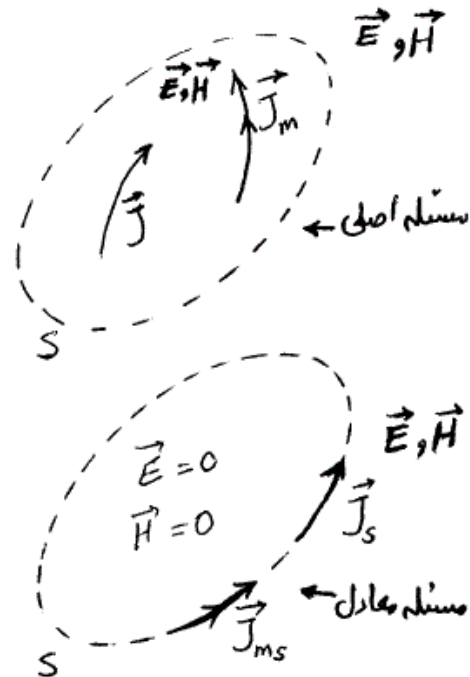 E⃗, H⃗
E⃗, H⃗
J⃗m
J⃗
مسئله اصلی
S
E⃗ = 0
H⃗ = 0
E⃗, H⃗
J⃗s
مسئله معادل
J⃗ms
S